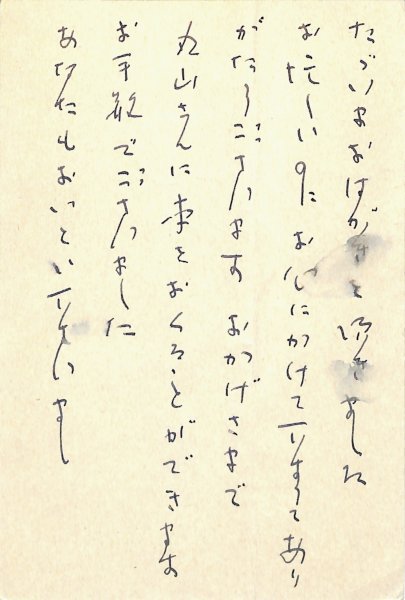 たゞいまおはがきを頂きました
お忙しいのにお心にかけて下すってあり
がたうございます おかげさまで
丸山さんに本をおくることができます
お手数でございました
あなたもおいとい下さいまし